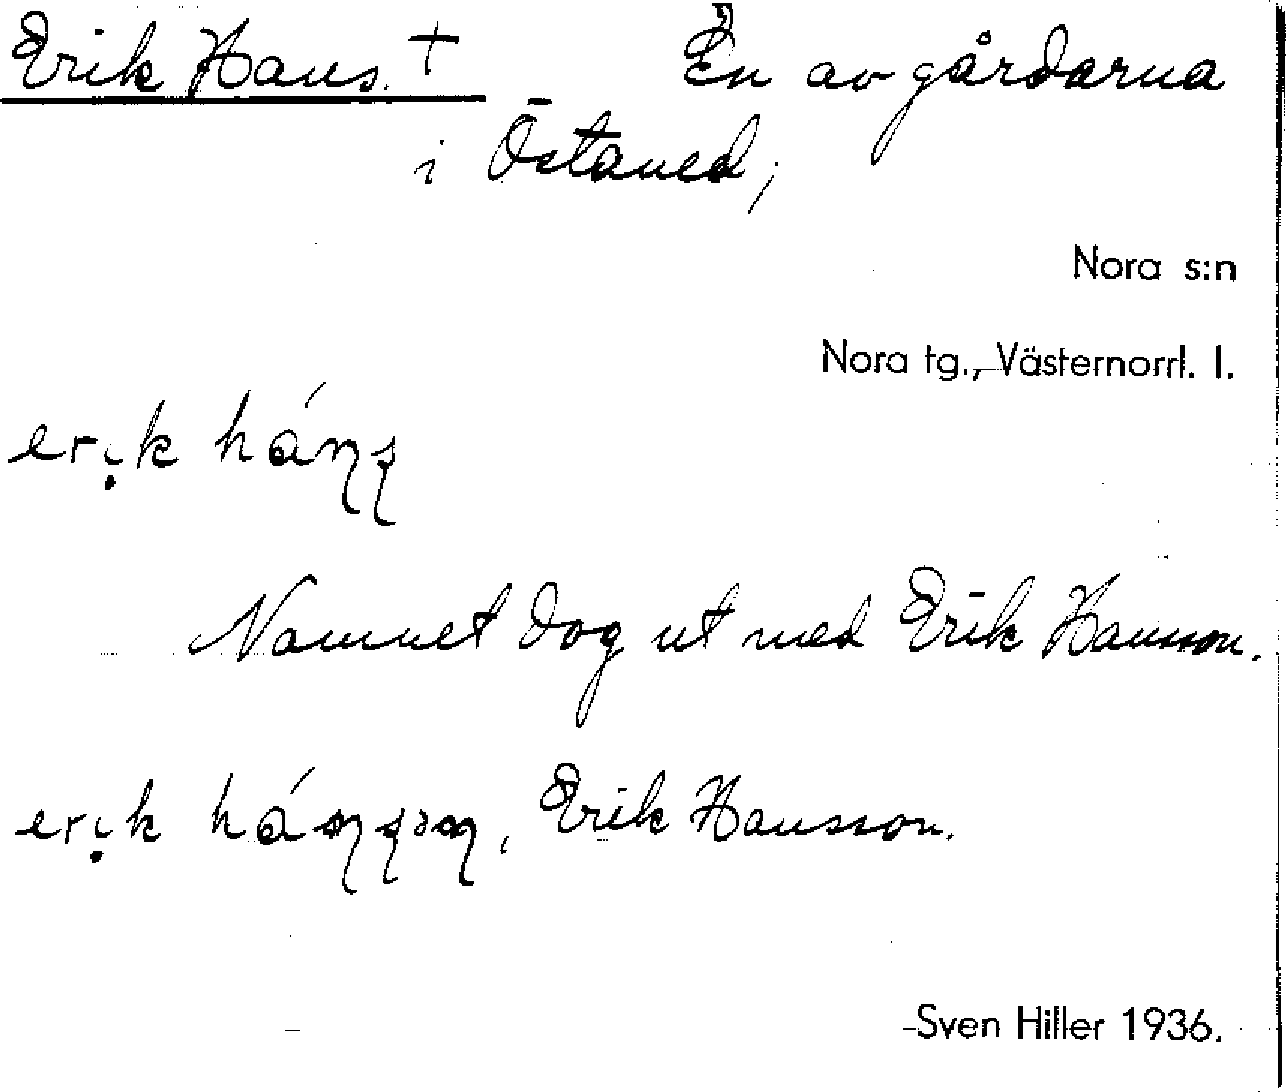 Erik Hans. † En av gårdarna
i Östaned,
Nora s:n
Nora tg., Västernorrl. l.
Namnet dog ut med Erik Hansson.
Erik Hansson.
Sven Hiller 1936.